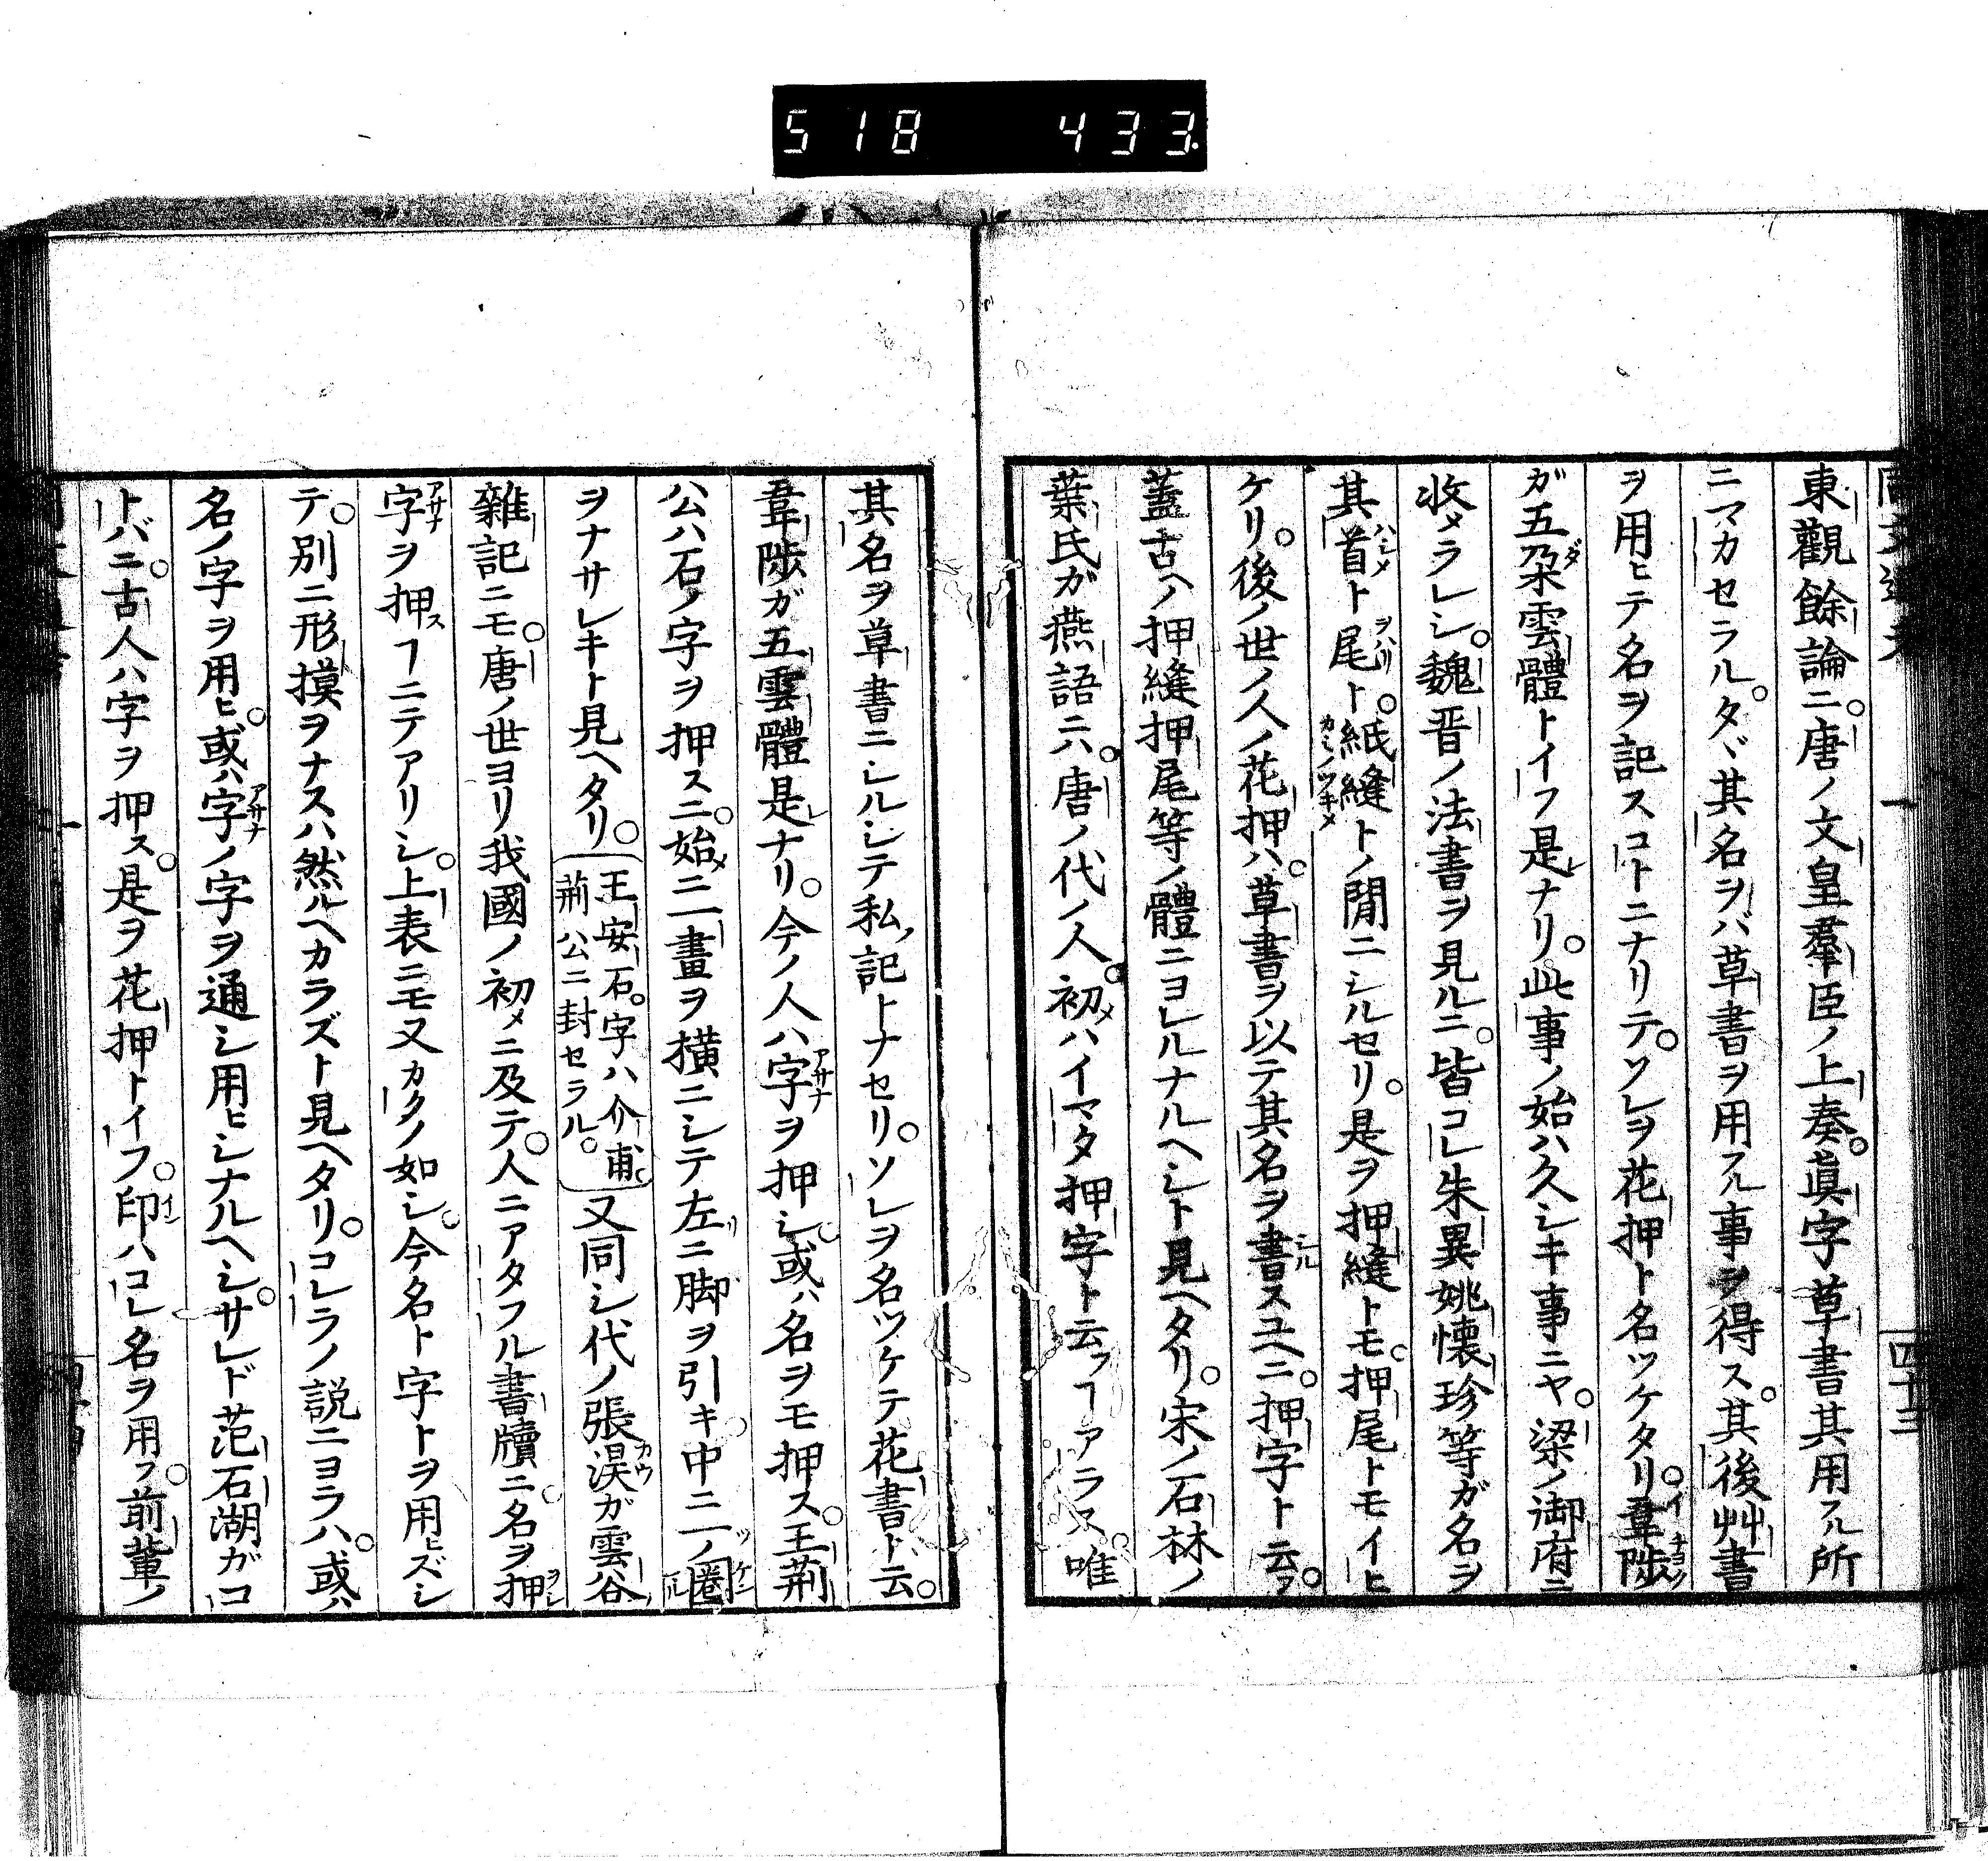 518 433
四十三
東觀餘論ニ。唐ノ文皇羣臣ノ上奏。眞字草書其用フル所
ニマカセラル。タヾ其名ヲバ草書ヲ用フル事ヲ得ス。其後艸書
ヲ用ヒテ名ヲ記スコトニナリテ。ソレヲ花押ト名ツケタリ。韋陟
ガ五朶雲體トイフ是レナリ。此事ノ始ハ久シキ事ニヤ。梁ノ御府ニ
收メラレシ。魏晋ノ法書ヲ見ルニ。皆コレ朱異姚懷珍等ガ名ヲ
其首ト尾ト。紙縫トノ閒ニシルセリ。是ヲ押縫トモ。押尾トモイヒ
ケリ。後ノ世ノ人ノ花押ハ。草書ヲ以テ其名ヲ書スユヘニ。押字ト云フ。
蓋古ヘノ押縫押尾等ノ體ニヨレルナルヘシト見ヘタリ。宋ノ石林ノ
葉氏ガ燕語ニハ。唐ノ代ノ人。初メハイマタ押字ト云フヿアラス。唯
其名ヲ草書ニシルシテ私ノ記トナセリ。ソレヲ名ツケテ花書ト云。
韋陟ガ五雲體是レナリ。今ノ人ハ字ヲ押シ。或ハ名ヲモ押ス。王荊
公ハ石ノ字ヲ押スニ。始メニ一畫ヲ橫ニシテ左リニ脚ヲ引キ。中ニ一ツノ圈
ヲナサレキト見ヘタリ。王安石。字ハ介甫。
荊公ニ封セラル。
又同シ代ノ張淏ガ雲谷
雜記ニモ。唐ノ世ヨリ我國ノ初メニ及テ。人ニアタフル書牘ニ。名ヲ押
字ヲ押スヿニテアリシ。上表ニモ又カクノ如シ。今名ト字トヲ用ヒズシ
テ。別ニ形摸ヲナスハ然ルヘカラズト見ヘタリ。コレラノ説ニヨラハ。或ハ
名ノ字ヲ用ヒ。或ハ字ノ字ヲ通シ用ヒシナルヘシ。サレド范石湖ガコ
トバニ。古人ハ字ヲ押ス。是ヲ花押トイフ。印ハコレ名ヲ用フ。前輩ノ